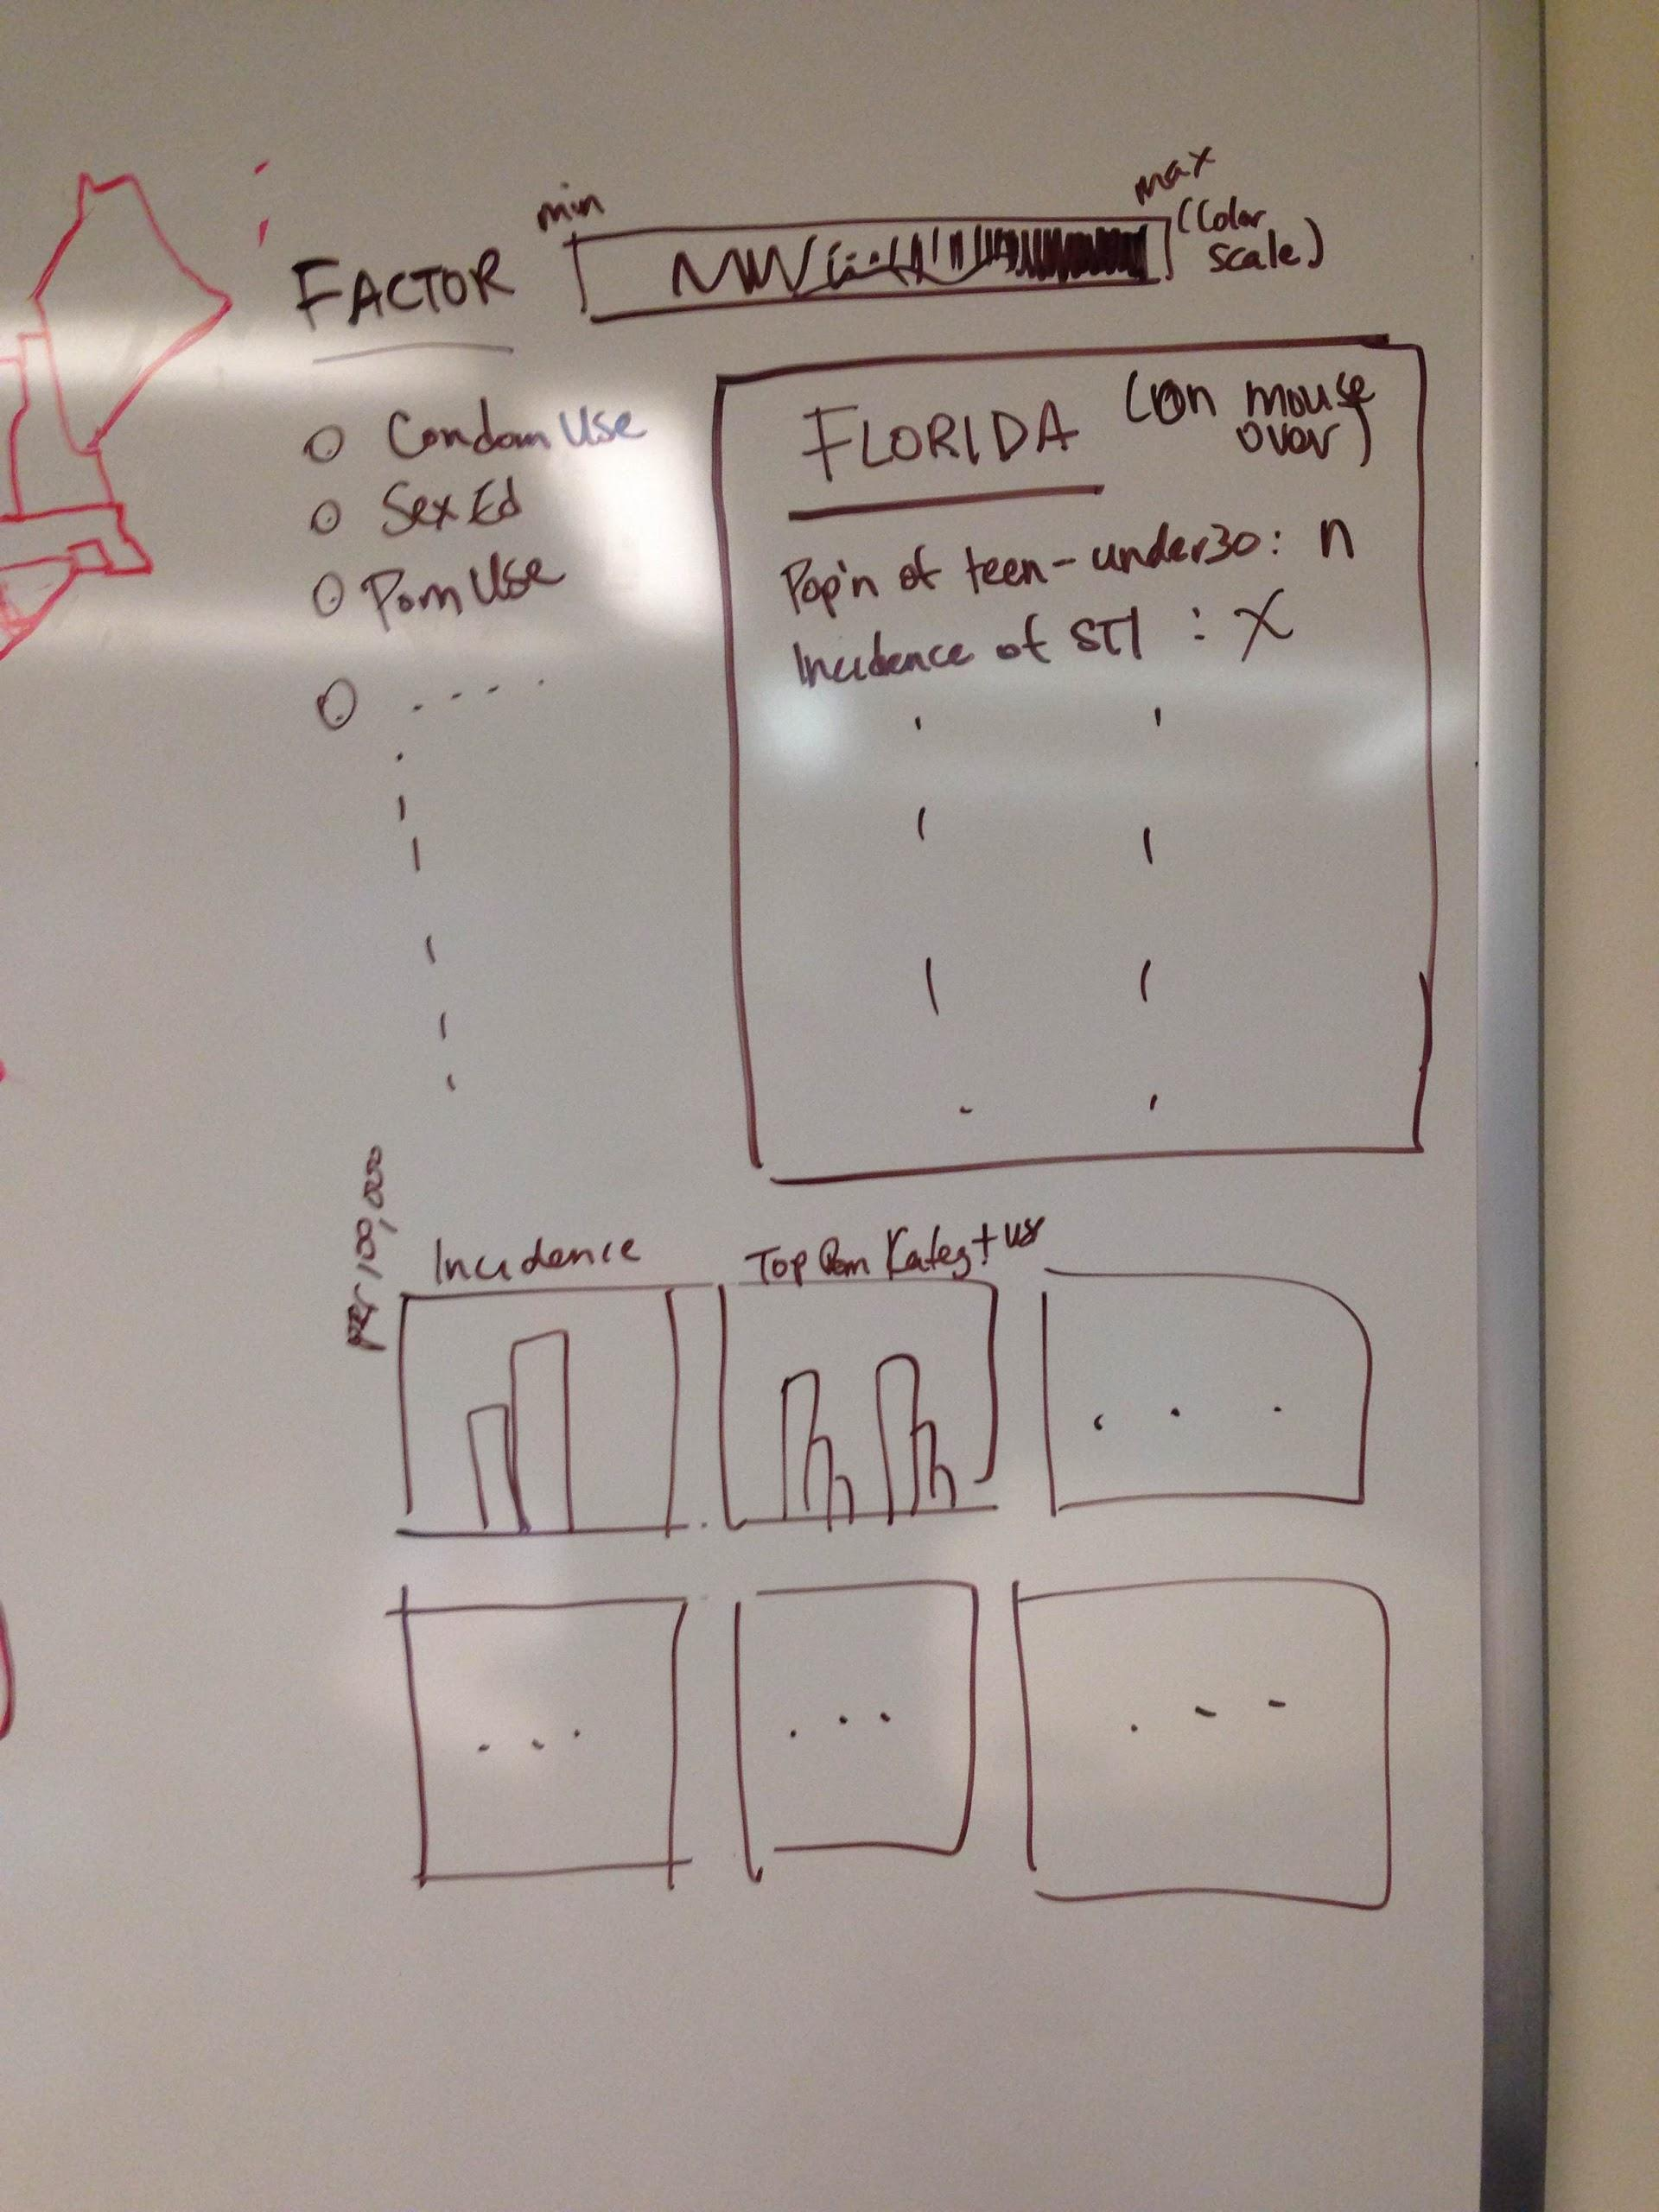 min
max
(Color
scale)
FACTOR
Condom Use
Sex Ed
Porn Use
FLORIDA (on mouse
over)
Pop'n of teen-under30: n
Incidence of STI : X
per 100,000
Incidence
Top Porn